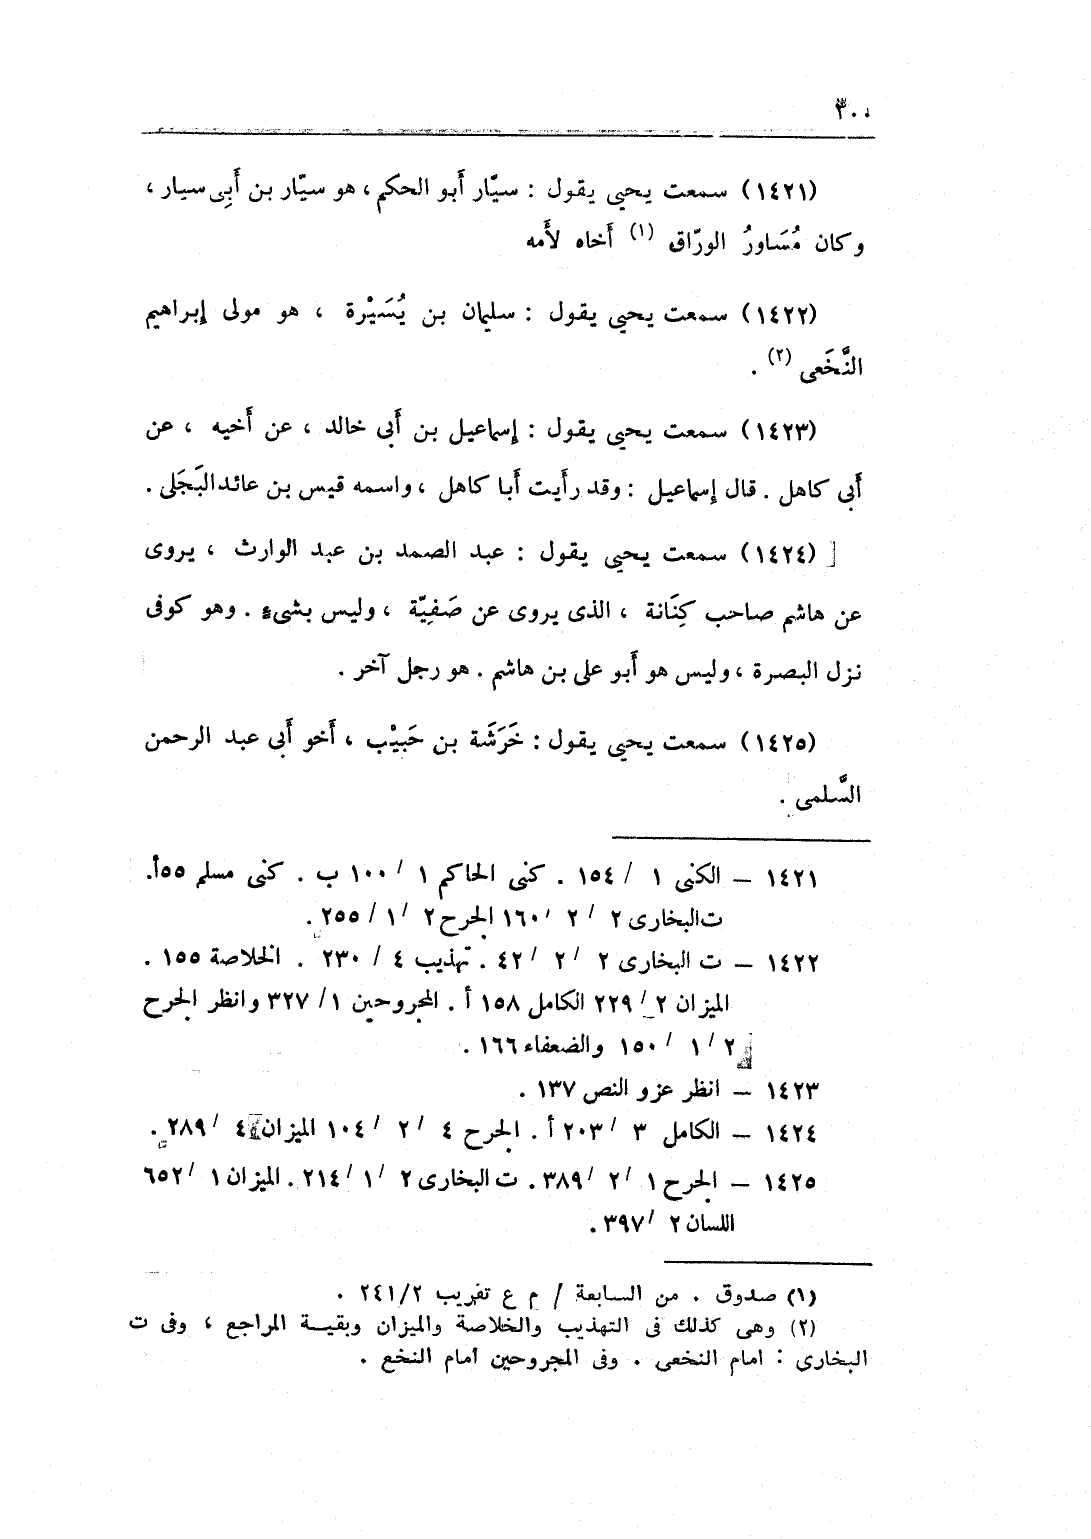 ٣٠٠
(١٤٢١) سمعت يحيى يقول : سيّار أبو الحكم ، هو سيّار بن أَبِى سيار ،
وكان مُسَاورُ الورّاق (١) أَخاه لأَمه
(١٤٢٢) سمعت يحيى يقول : سليمان بن يُسَيْرة ، هو مولى إبراهيم
النَّخَعى (٢) .
(١٤٢٣) سمعت يحيى يقول : إسماعيل بن أَبى خالد ، عن أَخيه ، عن
أَبى كاهل . قال إسماعيل : وقد رأَيت أَبا كاهل ، واسمه قيس بن عائد البَجَلى .
(١٤٢٤) سمعت يحيى يقول : عبد الصمد بن عبد الوارث ، يروى
عن هاشم صاحب كِنَانة ، الذى يروى عن صَفيّة ، وليس بشىء . وهو كوفى
نزل البصرة ، وليس هو أَبو على بن هاشم . هو رجل آخر .
(١٤٢٥) سمعت يحيى يقول : خَرَشَة بن حَبيْب ، أَخو أَبى عبد الرحمن
السَّلمى .
١٤٢١ – الكنى ١ / ١٥٤ . كنى الحاكم ١ / ١٠٠ ب . كنى مسلم ٥٥أ.
ت البخارى ٢ / ٢ / ١٦٠ الجرح ٢ / ١ / ٢٥٥ .
١٤٢٢ – ت البخارى ٢ / ٢ / ٤٢ . تهذيب ٤ / ٢٣٠ . الخلاصة ١٥٥ .
الميزان ٢ / ٢٢٩ الكامل ١٥٨ أ . المجروحين ١ / ٣٢٧ وانظر الجرح
٢ / ١ / ١٥٠ والضعفاء ١٦٦ .
١٤٢٣ – انظر عزو النص ١٣٧ .
١٤٢٤ – الكامل ٣ / ٢٠٣ أ . الجرح ٤ / ٢ / ١٠٤ الميزان ٤ / ٢٨٩ .
١٤٢٥ – الجرح ١ / ٢ / ٣٨٩ . ت البخارى ٢ / ١ / ٢١٤ . الميزان ١ / ٦٥٢
اللسان ٢ / ٣٩٧ .
(١) صدوق . من السابعة / م ع تقريب ٢/٢٤١ .
(٢) وهى كذلك فى التهذيب والخلاصة والميزان وبقيــة المراجع ، وفى ت
البخارى : امام النخعى . وفى المجروحين امام النخع .